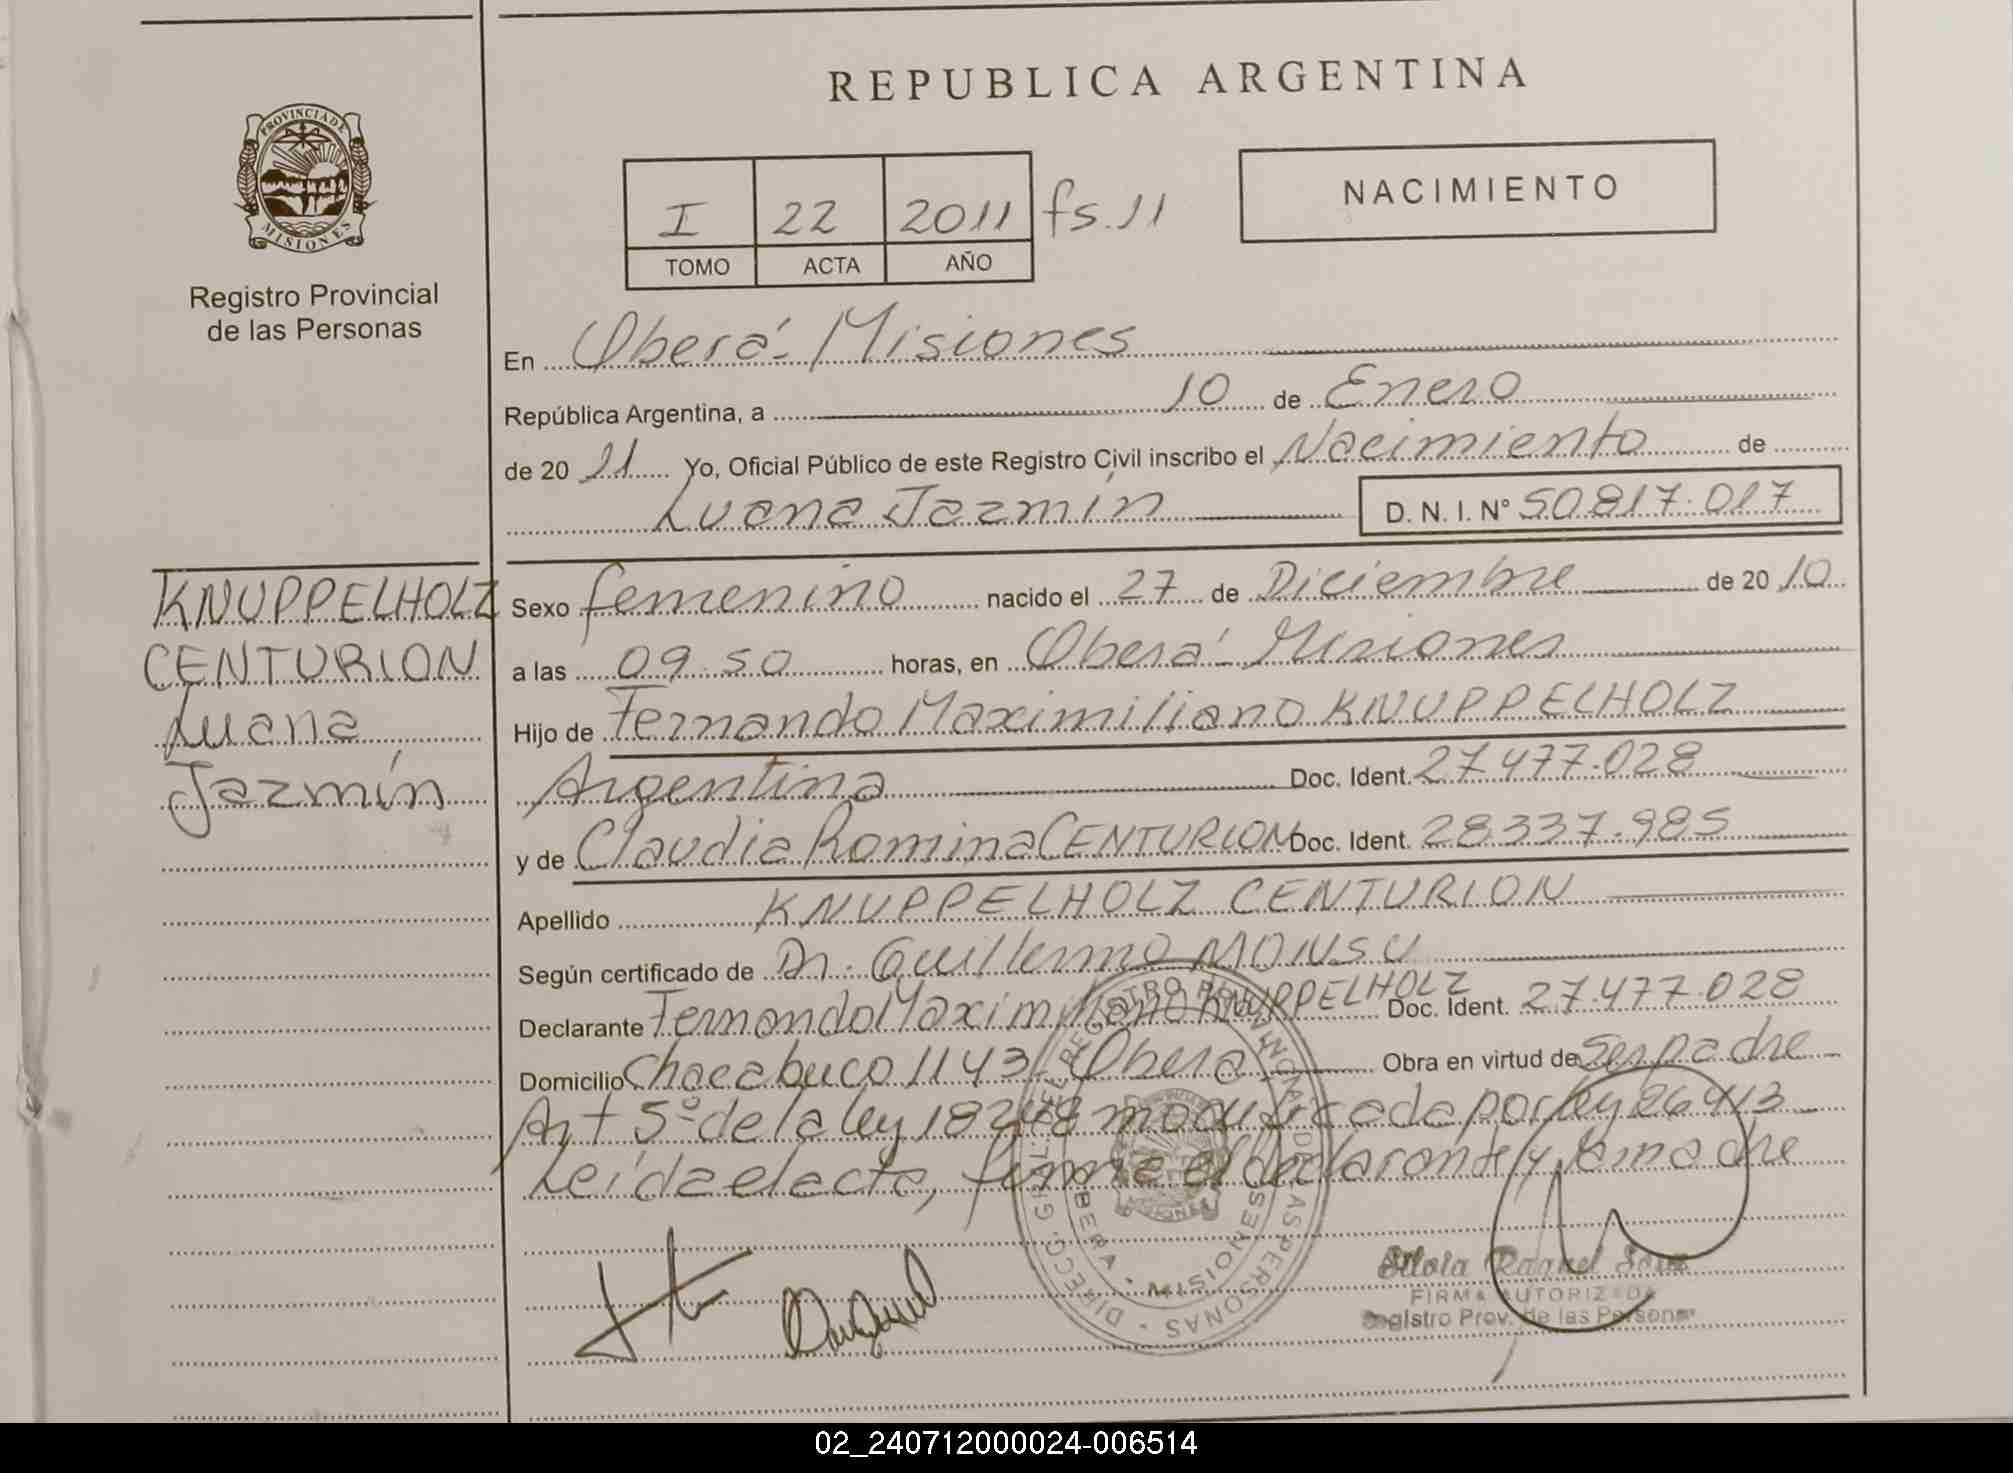 REPUBLICA ARGENTINA
PROVINCIA DE
MISIONES
Registro Provincial
de las Personas
I 22 2011 fs. 11
TOMO ACTA AÑO
NACIMIENTO
En Oberá - Misiones
República Argentina, a 10 de Enero
de 20 11 Yo, Oficial Público de este Registro Civil inscribo el Nacimiento de
Luana Jazmín D. N. I. Nº 50.817.017
KNUPPELHOLZ
CENTURION
Luana
Jazmín
Sexo femenino nacido el 27 de Diciembre de 20 10
a las 09.50 horas, en Oberá - Misiones
Hijo de Fernando Maximiliano KNUPPELHOLZ
Argentina Doc. Ident. 27.477.028
y de Claudia Romina CENTURION Doc. Ident. 28.337.985
Apellido KNUPPELHOLZ CENTURION
Según certificado de Dr. Guillermo MONSU
Declarante Fernando Maximiliano KNUPPELHOLZ Doc. Ident. 27.477.028
Domicilio Chacabuco 1143 - Oberá Obra en virtud de Ser padre
Art 5º de la ley 18248 modificada por ley 26413
Leída el acta, firma el declarante y la madre
DIRECC. GRAL. DEL REGISTRO PROVINCIAL DE LAS PERSONAS
OBERA • MISIONES
Silvia Raquel
FIRMA AUTORIZADA
Registro Prov. de las Personas
02_240712000024-006514